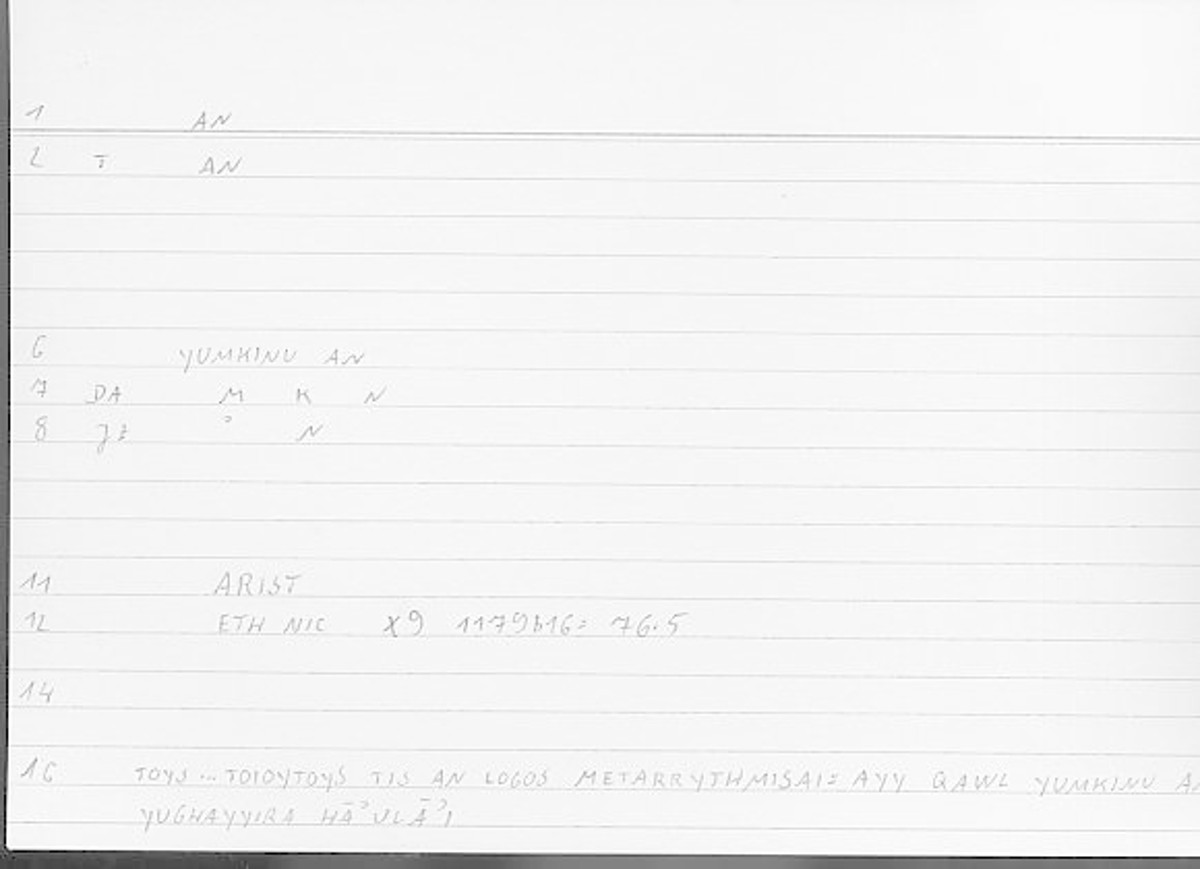 1 AN
2 T AN
6 YUMKINU AN
7 DA M K N
8 ʾ N
11 ARIST
12 ETH NIC X9 1179b16= 76.5
14
16 TOYS ... TOIOYTOYS TIS AN LOGOS METARRYTHMISAI= AYY QAWL YUMKINU AN
YUGHAYYIRA HĀʾULĀʾI